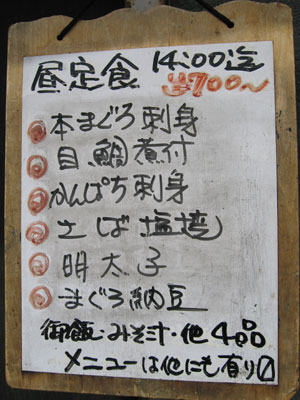 昼定食 14:00迄
¥700〜
本まぐろ刺身
目鯛煮付
かんぱち刺身
さば塩焼
明太子
まぐろ納豆
御飯・みそ汁・他4品
メニューは他にも有り〼